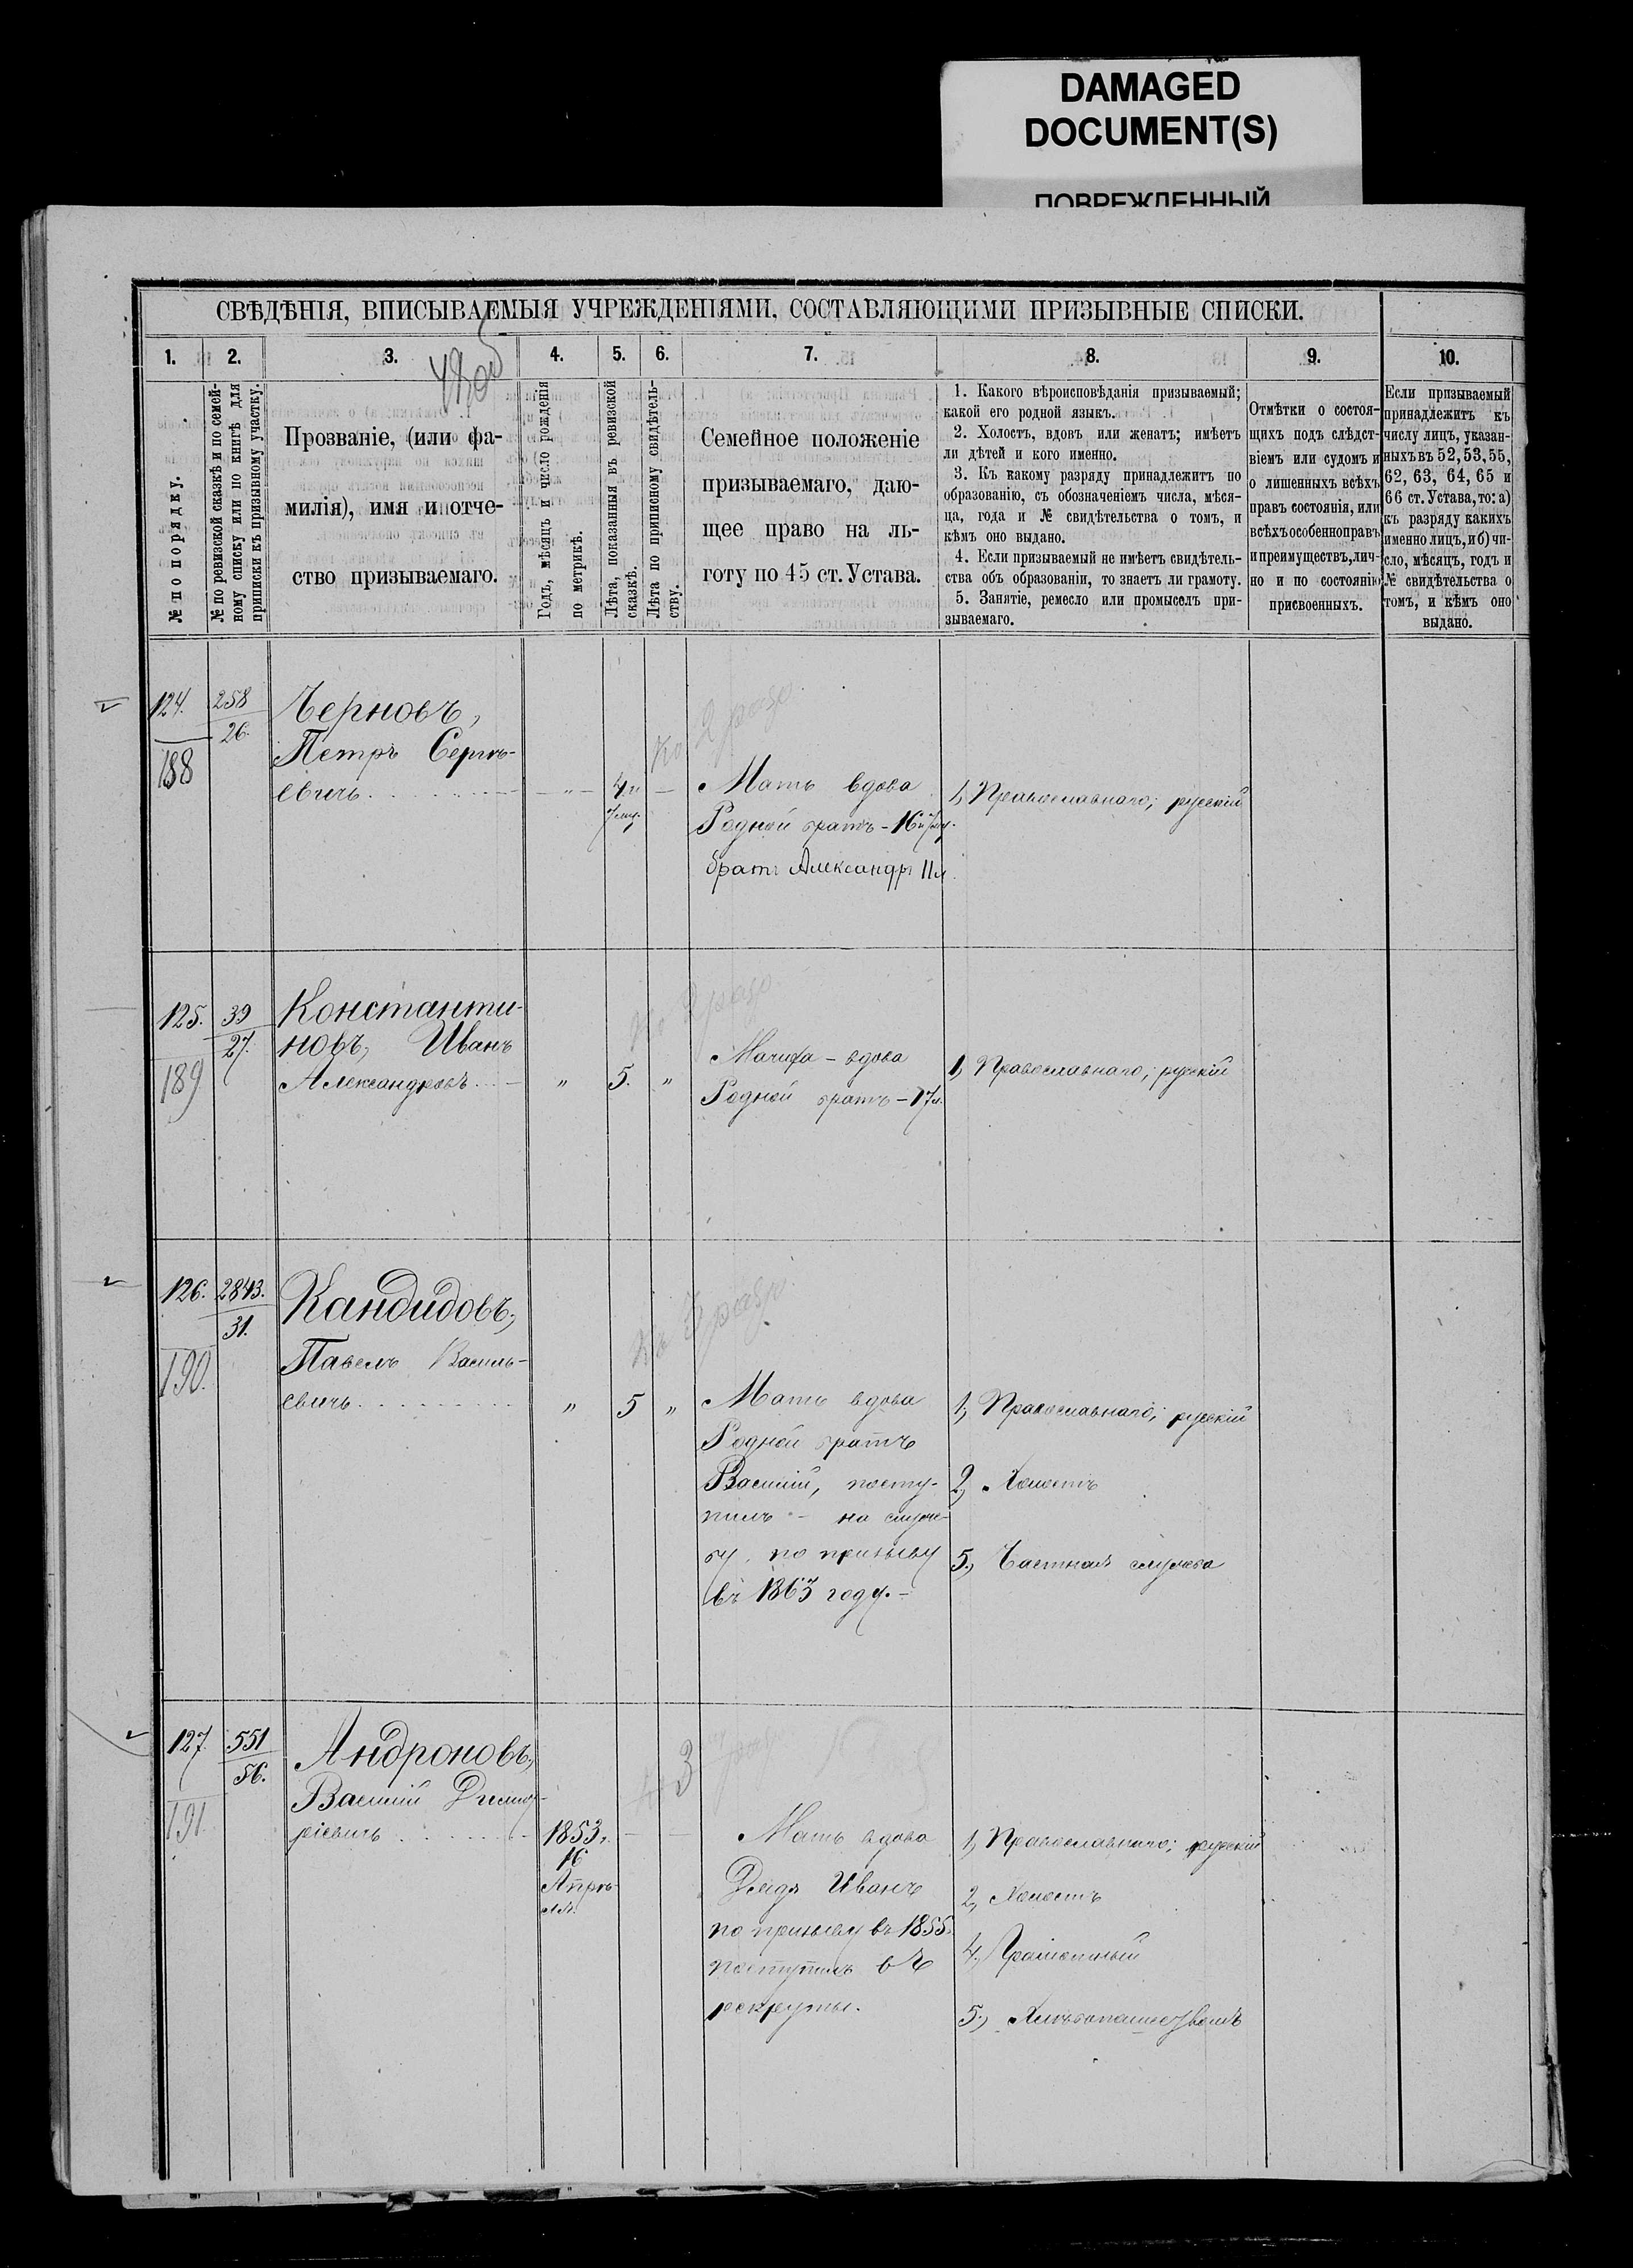 DAMAGED
DOCUMENT(S)
ПОВРЕЖДЕННЫЙ
СВѢДѢНІЯ, ВПИСЫВАЕМЫЯ УЧРЕЖДЕНІЯМИ, СОСТАВЛЯЮЩИМИ ПРИЗЫВНЫЕ СПИСКИ.
1. 2. 3. 4. 5. 6. 7. 8. 9. 10.
№ по порядку.
№ по ревизской сказкѣ и по семей-
ному списку или по книгѣ для
приписки къ призывному участку.
Прозваніе, (или фа-
милія), имя и отче-
ство призываемаго.
Годъ, мѣсяцъ и число рожденія
по метрикѣ.
Лѣта, показанныя въ ревизской
сказкѣ.
Лѣта по приписному свидѣтель-
ству.
Семейное положеніе
призываемаго, даю-
щее право на ль-
готу по 45 ст. Устава.
1. Какого вѣроисповѣданія призываемый;
какой его родной языкъ.
2. Холостъ, вдовъ или женатъ; имѣетъ
ли дѣтей и кого именно.
3. Къ какому разряду принадлежитъ по
образованію, съ обозначеніемъ числа, мѣся-
ца, года и № свидѣтельства о томъ, и
кѣмъ оно выдано.
4. Если призываемый не имѣетъ свидѣтель-
ства объ образованіи, то знаетъ ли грамоту.
5. Занятіе, ремесло или промыселъ при-
зываемаго.
Отмѣтки о состоя-
щихъ подъ слѣдст-
віемъ или судомъ и
о лишенныхъ всѣхъ
правъ состоянія, или
всѣхъ особенно правъ
и преимуществъ, лич-
но и по состоянію
присвоенныхъ.
Если призываемый
принадлежитъ къ
числу лицъ, указан-
ныхъ въ 52, 53, 55,
62, 63, 64, 65 и
66 ст. Устава, то: а)
къ разряду какихъ
именно лицъ, и б) чи-
сло, мѣсяцъ, годъ и
№ свидѣтельства о
томъ, и кѣмъ оно
выдано.
124. 258
26.
188
Черновъ,
Петръ Сергѣ-
евичъ
4 л.
7 мѣс.
Мать вдова
Родной братъ - 16
братъ Александръ 11 л.
1, Православнаго; русскій
125. 39
27.
189
Константи-
новъ, Иванъ
Александровъ
" 5. "
Мачиха - вдова
Родной братъ - 17 л.
1, Православнаго; русскій
126. 2843.
31.
190.
Кандидовъ,
Павелъ Василь-
евичъ
" 5 "
Мать вдова
Родной братъ
Василій, посту-
пилъ - на служ-
бу по призыву
въ 1863 году. -
1, Православнаго; русскій
2, Холостъ
5, Частная служба
127. 551
56.
191
Андроновъ,
Василій Димит-
ріевичъ
1853 г.
16
Апрѣ-
ля.
3
Мать вдова
Дядя Иванъ
по призыву въ 1855.
поступилъ въ
рекруты.
1, Православнаго; русскій
2, Холостъ
4, Грамотный
5, Хлѣбопашествомъ